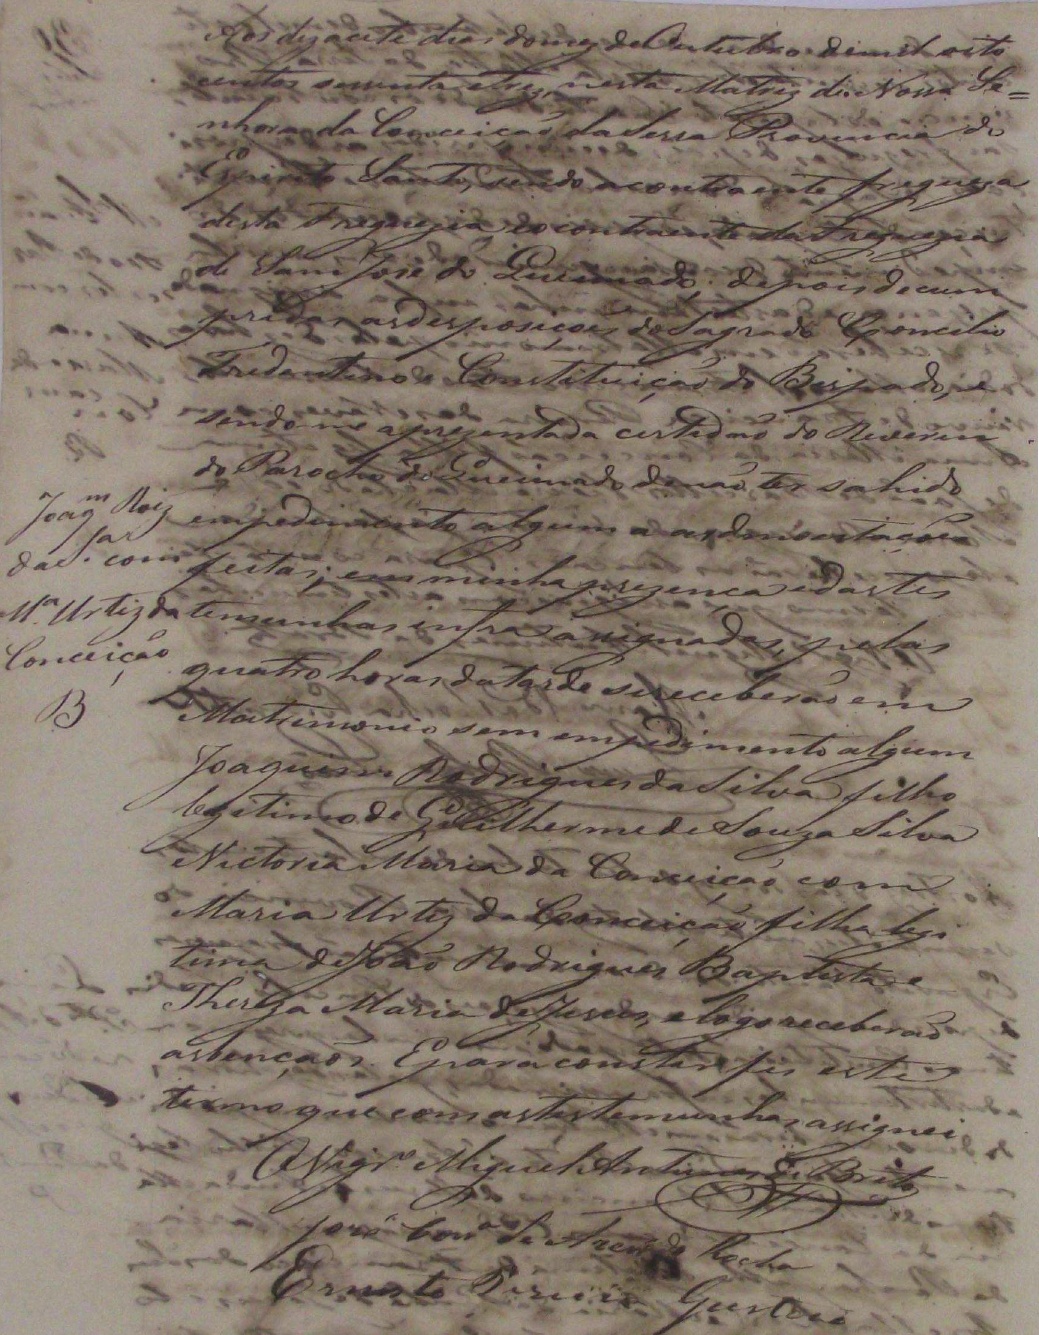 Aos dezacete dias do mez de Outubro de mil oito
centos secenta e trez, nesta Matriz de Nossa Se=
nhora da Conceição da Serra Provincia do
Espirito Santo, sendo a contraente fregueza
desta Freguezia, e o contraente da Freguezia
de San José do Queimado, depois de cum
pridas as desposições do Sagrado Concilio
Tredentino e Constituição do Bispado, e
sendo me aprezentada certidão do Reveren
do Parocho do Queimado de não ter sahido
empedimento algum a as dmoestações
feitas; em minha prezença e das tes
temunhas infra assignadas, pelas
quatro horas da tarde se receberão em
Matrimonio sem empedimento algum
Joaquim Rodrigues da Silva filho
legitimo de Guilherme de Souza Silva
Victoria Maria da Conceição com
Maria Urtiz da Conceição filha legi
tima de João Rodrigues Baptista e
Thereza Maria de Jesus, e logo receberão
as bençãos. E para constar fis este
termo que com as testemunhas assignei.
O Vigrº Miguel Antunes de Brito
José Rocha
Ernesto Pereira Gustavo
Joaqm Roiz
da Sª com
Mª Urtiz da
Conceição
B